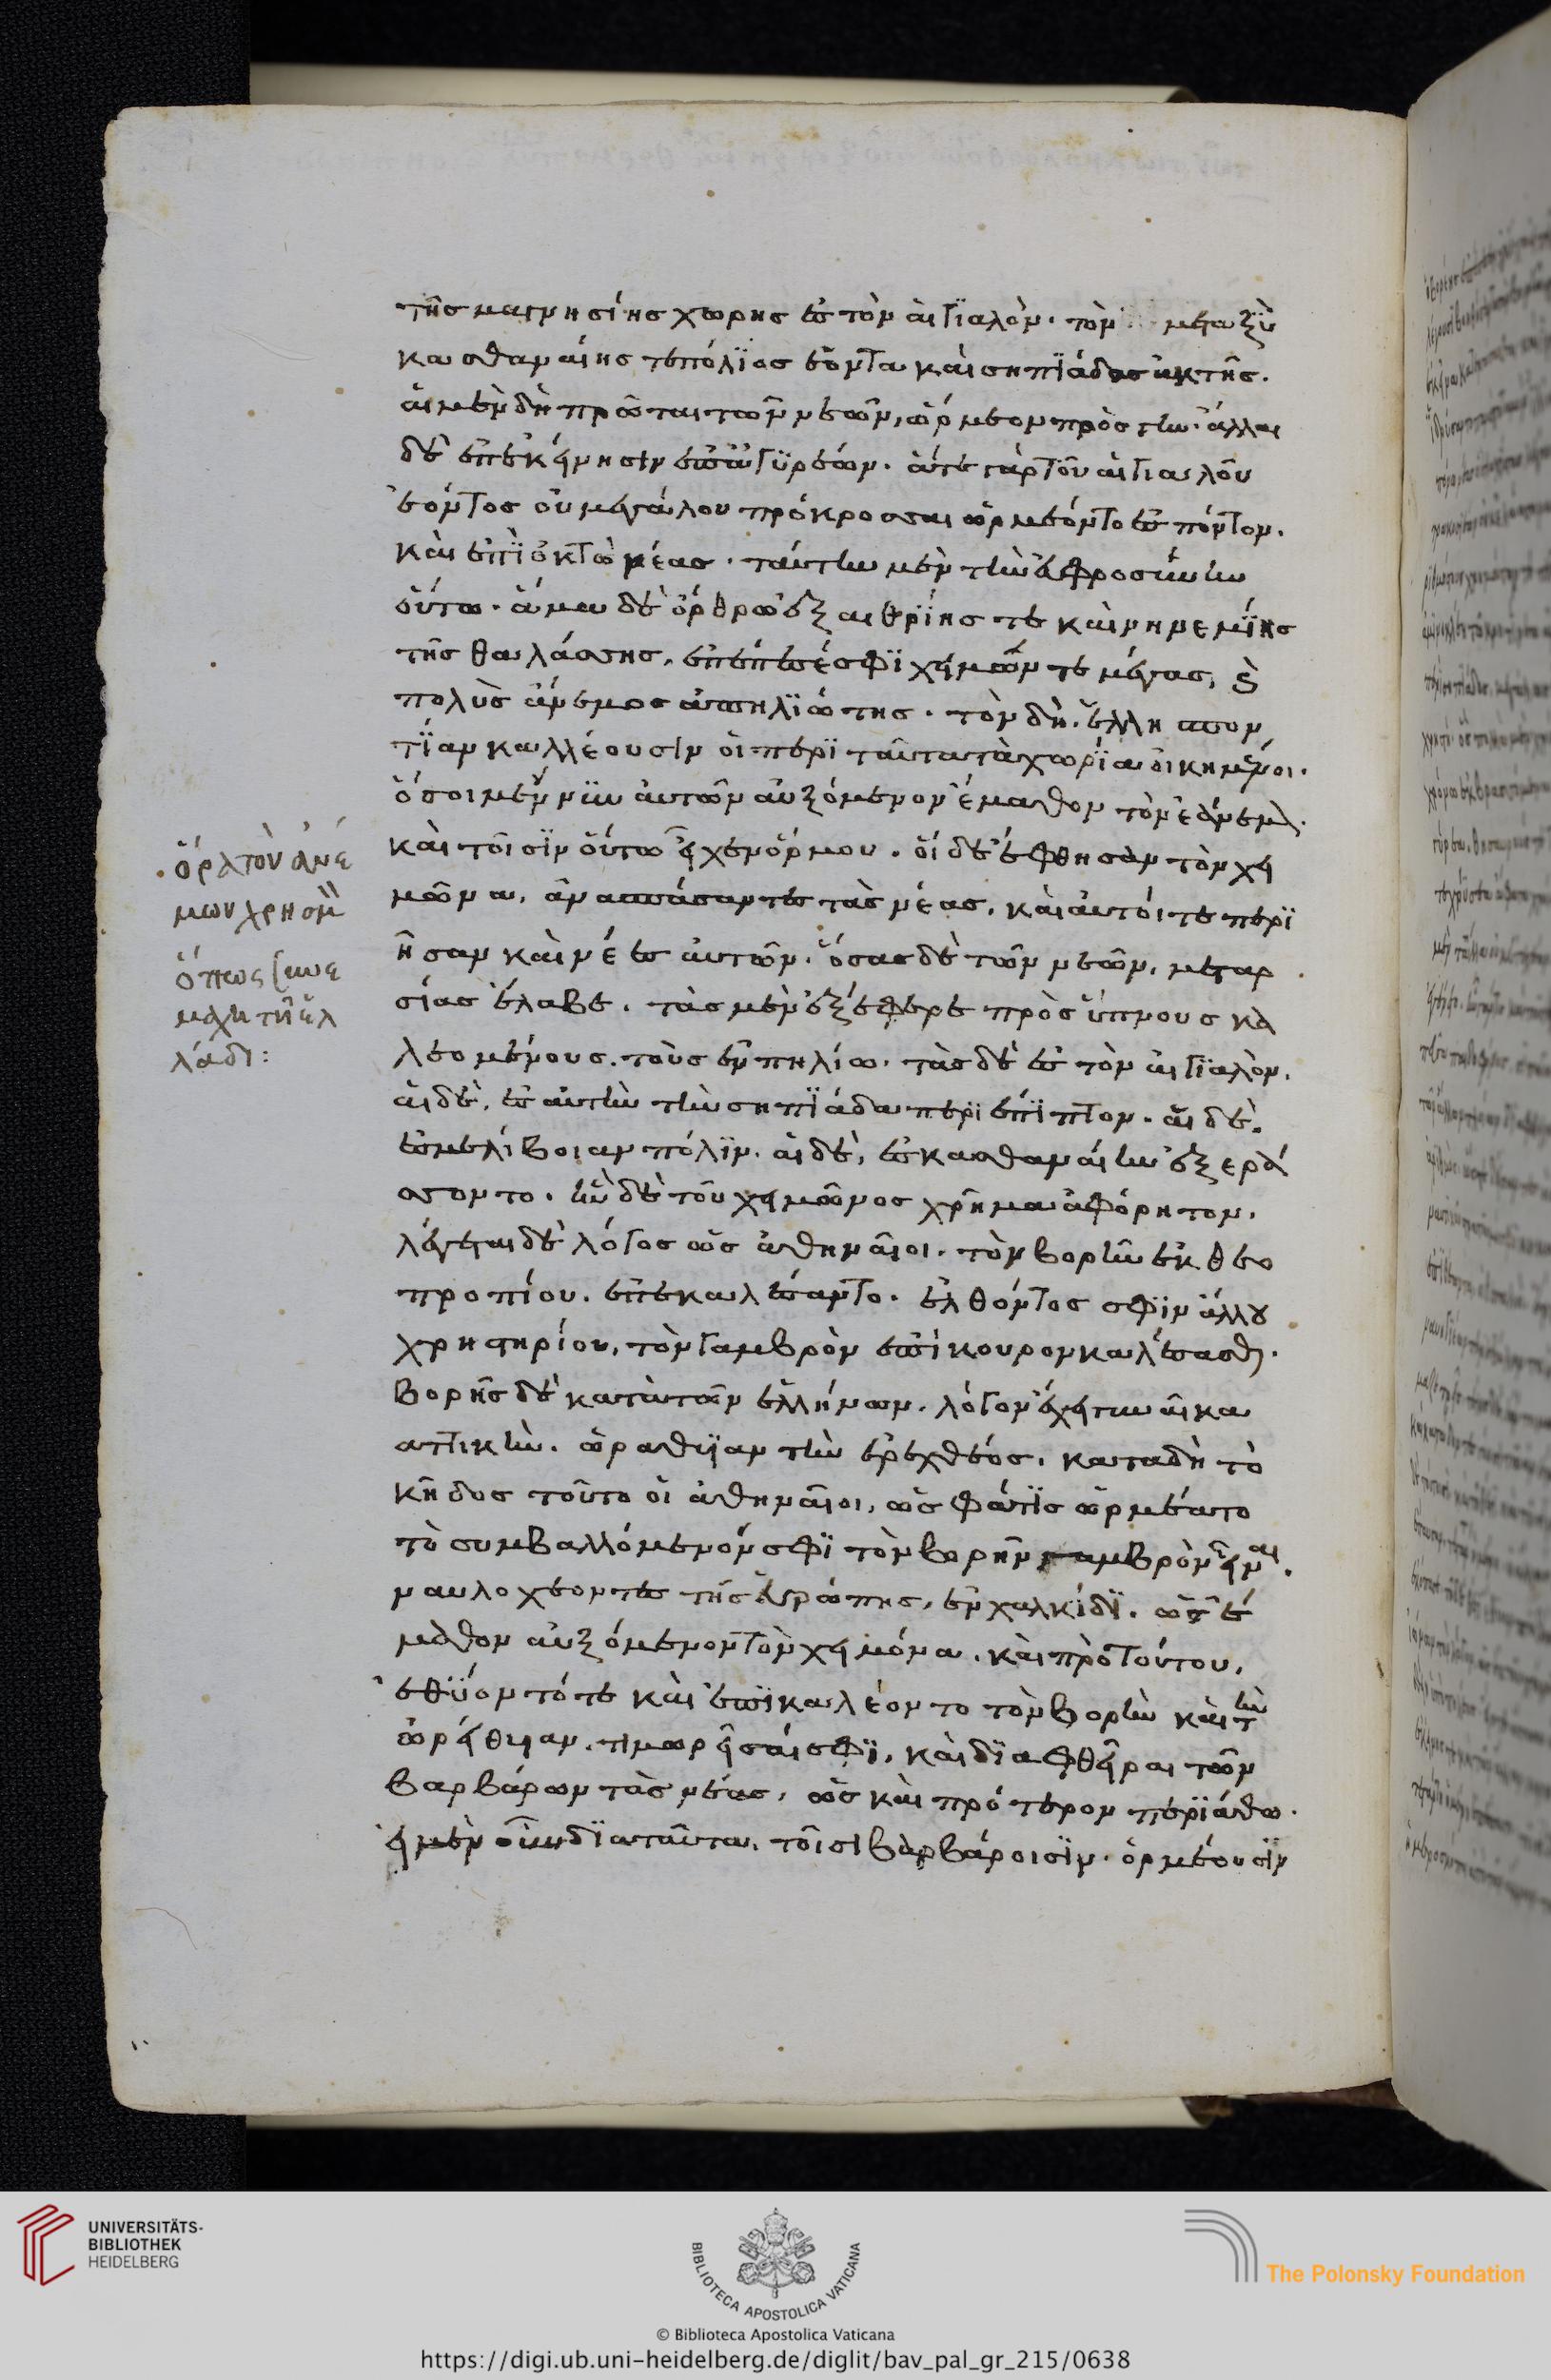 τῆς μαγνησίης χώρης ἐς τὸν αἰγιαλὸν. τὸν μεταξὺ
κασθαναίης τε πόλϊος ἐόντα καὶ σηπϊάδος ἀκτῆς.
αἱ μὲν δὴ πρῶται τῶν νεῶν, ὥρμεον πρὸς γῆν. ἄλλαι
δὲ ἐπεκείνησιν ἐπ' ἀγϋρέων. ἅτε γὰρ τοῦ αἰγιαλοῦ
ἐόντος οὐ μεγάλου πρόκροσσαι ὡρμέοντο ἐς πόντον.
καὶ ἐπὶ ὀκτὼ νέας. ταύτην μὲν τὴν εὐφροσύνην
οὕτω. ἅμα δὲ ὄρθρω ἐξ αἰθρίης τε καὶ νηνεμΐης
τῆς θαλάσσης, ἐπέπεσέ σφϊ χειμών τε μέγας, καὶ
πολὺς ἄνεμος ἀπηλϊώτης. τὸν δὴ. ἑλλησπον
τΐαν καλλέουσιν οἱ περὶ ταῦτα τὰ χωρία οἰκημένοι.
ὅσοι μέν νϋν αὐτῶν αὐξόμενον ἔμαθον τὸν ἄνεμον.
καὶ τοῖσϊν οὕτω εἶχεν ὅρμου. οἱ δὲ ἔφθησαν τὸν χει
μῶνα, ἀνασπάσαντες τὰς νέας, καὶ αὐτοί τε περϊ
ῆσαν καὶ νέες αὐτῶν. ὅσας δὲ τῶν νεῶν, μεταρ
σίας ἔλαβε. τὰς μὲν ἐξέφερε πρὸς ὕπνους κα
λεομένους. τοὺς ἐν πηλίω. τὰς δὲ ἐς τὸν αἰγϊαλὸν.
αἱ δὲ, ἐς αὐτὴν τὴν σηπϊάδα περϊ έπϊπτον. αἱ δὲ.
ἐς μελίβοιαν πόλϊν. αἱ δὲ, ἐς κασθαναίην ἐξεβρά
σσοντο. ἦν δὲ τοῦ χειμῶνος χρῆμα ἀφόρητον.
λέγεται δὲ λόγος ὡς ἀθηναῖοι. τὸν βορῆν ἐκ θεο
προπίου. ἐπεκαλέσαντο. ἐλθόντος σφϊν ἄλλου
χρηστηρίου, τὸν γαμβρὸν ἐπίκουρον καλέσασθαι.
βορῆς δὲ κατὰ τῶν ἑλλήνων. λόγον ἔχει γυναῖκα
αττικὴν. ὠραθϋΐαν τὴν ἐρεχθέος. κατα δὴ τὸ
κῆδος τοῦτο οἱ ἀθηναῖοι, ὡς φάτϊς ὡρμέατο
τὸ συμβαλλόμενόν σφϊ τὸν βορῆν γαμβρὸν εἶναι.
ναυλοχέοντες τῆς εὐρώπης, ἐν χαλκίδϊ. ὡς ἔ
μαθον αὐξόμενον τὸν χειμόνα. καὶ πρὸ τούτου,
ἐθϋόντό τε καὶ ἐπϊκαλέοντο τὸν βορῆν καὶ τὴν
ὠρείθυιαν. τιμωρῆσαί σφϊ, καὶ διαφθεῖραι τῶν
βαρβάρων τὰς νέας, ὡς καὶ πρότερον περϊ ἄθω.
εἰ μὲν οὖν δϊα ταῦτα. τοῖσι βαρβάροισϊν. ὁρμέουσϊν
ὅρα τὸν ἀνέ
μων χρησμὸν
ὅπως συνε
μάχει τῆ ἑλ
λάδι:
UNIVERSITÄTS-
BIBLIOTHEK
HEIDELBERG
BIBLIOTECA APOSTOLICA VATICANA
The Polonsky Foundation
© Biblioteca Apostolica Vaticana
https://digi.ub.uni-heidelberg.de/diglit/bav_pal_gr_215/0638